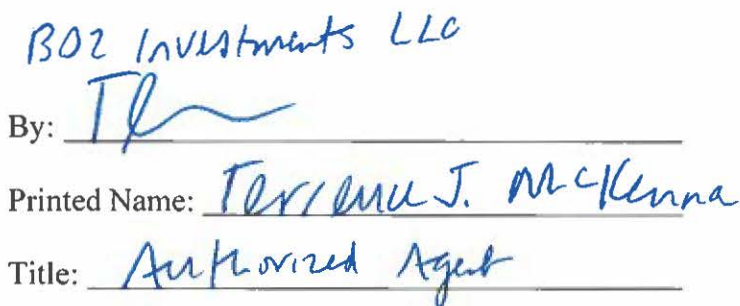 BO2 Investments LLC
By:
Printed Name: Terrence J. McKenna
Title: Authorized Agent